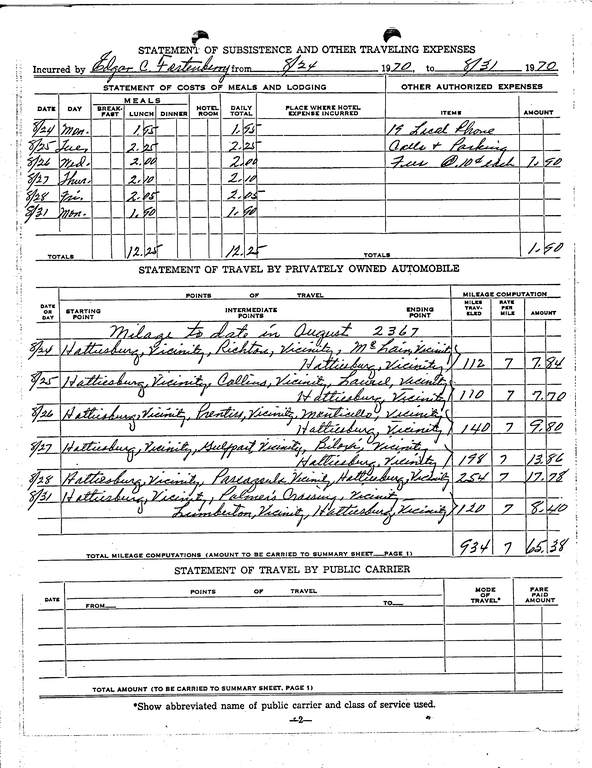 STATEMENT OF SUBSISTENCE AND OTHER TRAVELING EXPENSES
Incurred by Edgar C. Fortenberry from 8/24 1970, to 8/31 1970
STATEMENT OF COSTS OF MEALS AND LODGING OTHER AUTHORIZED EXPENSES
DATE DAY MEALS BREAK-FAST LUNCH DINNER HOTEL ROOM DAILY TOTAL PLACE WHERE HOTEL EXPENSE INCURRED ITEMS AMOUNT
8/24 Mon. 1.95 1.95 19 Local Phone
8/25 Tues. 2.25 2.25 Calls & Parking
8/26 Wed. 2.00 2.00 Fees @ .10¢ each 1.90
8/27 Thur. 2.10 2.10
8/28 Fri. 2.05 2.05
8/31 Mon. 1.90 1.90
TOTALS 12.25 12.25 TOTALS 1.90
STATEMENT OF TRAVEL BY PRIVATELY OWNED AUTOMOBILE
DATE OR DAY POINTS OF TRAVEL STARTING POINT INTERMEDIATE POINTS ENDING POINT MILEAGE COMPUTATION MILES TRAV-ELED RATE PER MILE AMOUNT
Milage to date in August 2367
8/24 Hattiesburg, Vicinity, Richton, Vicinity, McLain, Vicinity
Hattiesburg, Vicinity 112 7 7.84
8/25 Hattiesburg, Vicinity, Collins, Vicinity, Laurel, Vicinity
Hattiesburg, Vicinity 110 7 7.70
8/26 Hattiesburg, Vicinity, Prentiss, Vicinity, Monticello, Vicinity
Hattiesburg, Vicinity 140 7 9.80
8/27 Hattiesburg, Vicinity, Gulfport Vicinity, Biloxi, Vicinity
Hattiesburg, Vicinity 198 7 13.86
8/28 Hattiesburg, Vicinity, Pascagoula, Vicinity, Hattiesburg, Vicinity 254 7 17.78
8/31 Hattiesburg, Vicinity, Palmer's Crossing, Vicinity
Lumberton, Vicinity, Hattiesburg, Vicinity 120 7 8.40
TOTAL MILEAGE COMPUTATIONS (AMOUNT TO BE CARRIED TO SUMMARY SHEET—PAGE 1) 934 7 65.38
STATEMENT OF TRAVEL BY PUBLIC CARRIER
DATE POINTS OF TRAVEL FROM TO MODE OF TRAVEL* FARE PAID AMOUNT
TOTAL AMOUNT (TO BE CARRIED TO SUMMARY SHEET, PAGE 1)
*Show abbreviated name of public carrier and class of service used.
—2—